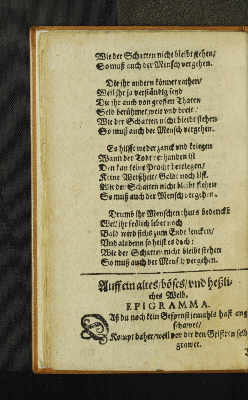 Wie der Schatten nicht bleibt stehen/
So muß auch der Mensch vergehen.
Die ihr andern könnet rathen/
Weil ihr ja verständig seyd
Die ihr auch von grossen Thaten
Seid berühmet/ weit vnd breit:
Wie der Schatten nicht bleibt stehen
So muß auch der Mensch vergehen.
Es hilfft weder zanck vnd kriegen
Wann der Tode verhanden ist
Den kan keine Pracht
Keine Weißheit/ Geldt noch list.
Wie der Schatten nicht bleibt stehen
So muß auch der Mensch vergehen.
Drumb ihr Menschen thuts bedencken
Weil ihr frölich lebet noch
Bald wird sichs zum Ende lencken/
Vnd alsdenn so heist es doch:
Wie der Schatten nicht bleibt stehen
So muß auch der Mensch vergehen.
Auff ein altes/ böses/ vnd heßli-
ches Weib.
EPIGRAMMA.
Aß du noch kein Gespenst jemahls hast ange
schawet/
Kompt daher/ weil vor dir den Geistern selb
grawet.